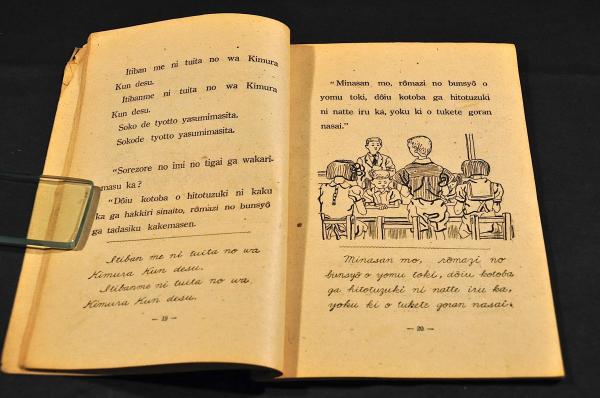 Itiban me ni tuita no wa Kimura
Kun desu.
Itibanme ni tuita no wa Kimura
Kun desu.
Soko de tyotto yasumimasita.
Sokode tyotto yasumimasita.
"Sorezore no imi no tigai ga wakari-
masu ka?
"Dōiu kotoba o hitotuzuki ni kaku
ka ga hakkiri sinaito, rōmazi no bunsyō
ga tadasiku kakemasen.
Itiban me ni tuita no wa
Kimura Kun desu.
Itibanme ni tuita no wa
Kimura Kun desu.
— 19 —
"Minasan mo, rōmazi no bunsyō o
yomu toki, dōiu kotoba ga hitotuzuki
ni natte iru ka, yoku ki o tukete goran
nasai."
Minasan mo, rōmazi no
bunsyō o yomu toki, dōiu kotoba
ga hitotuzuki ni natte iru ka,
yoku ki o tukete goran nasai.
— 20 —